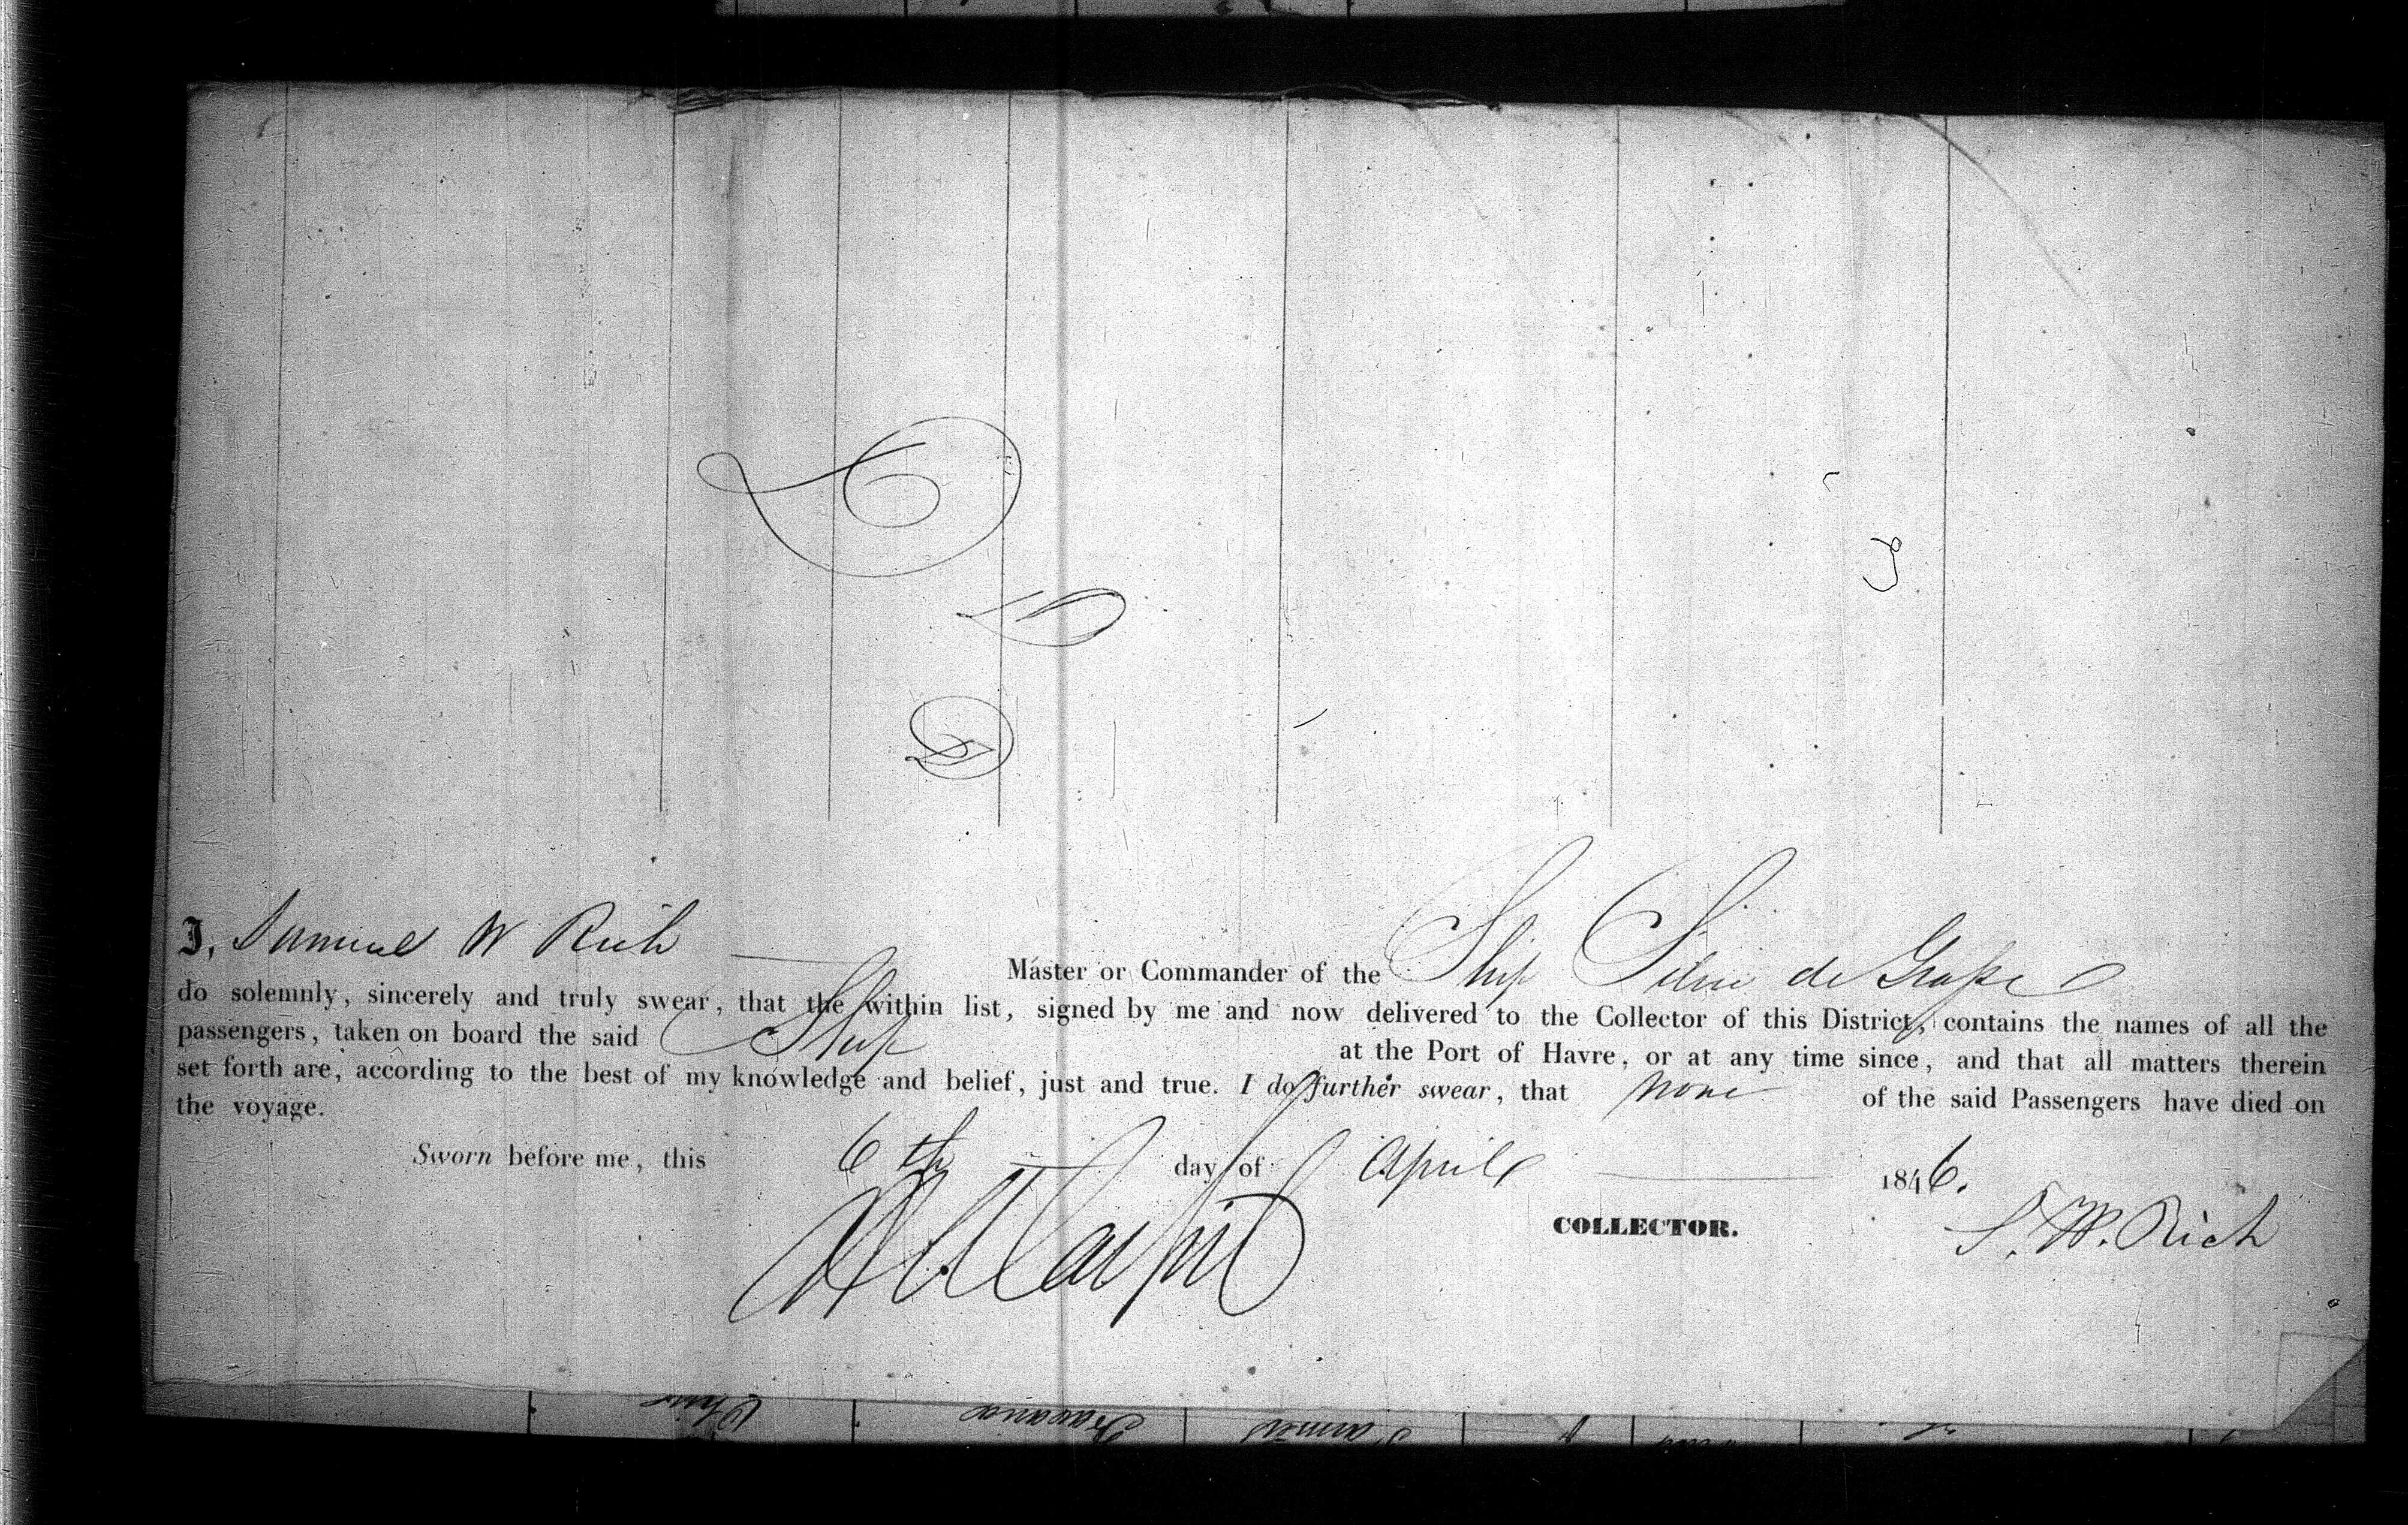 I, Samuel W Rich Master or Commander of the Ship Silvie de Grasse
do solemnly, sincerely and truly swear, that the within list, signed by me and now delivered to the Collector of this District, contains the names of all the
passengers, taken on board the said Ship at the Port of Havre, or at any time since, and that all matters therein
set forth are, according to the best of my knowledge and belief, just and true. I do further swear, that none of the said Passengers have died on
the voyage.
Sworn before me, this 6th day of April 1846.
COLLECTOR.
S. W. Rich